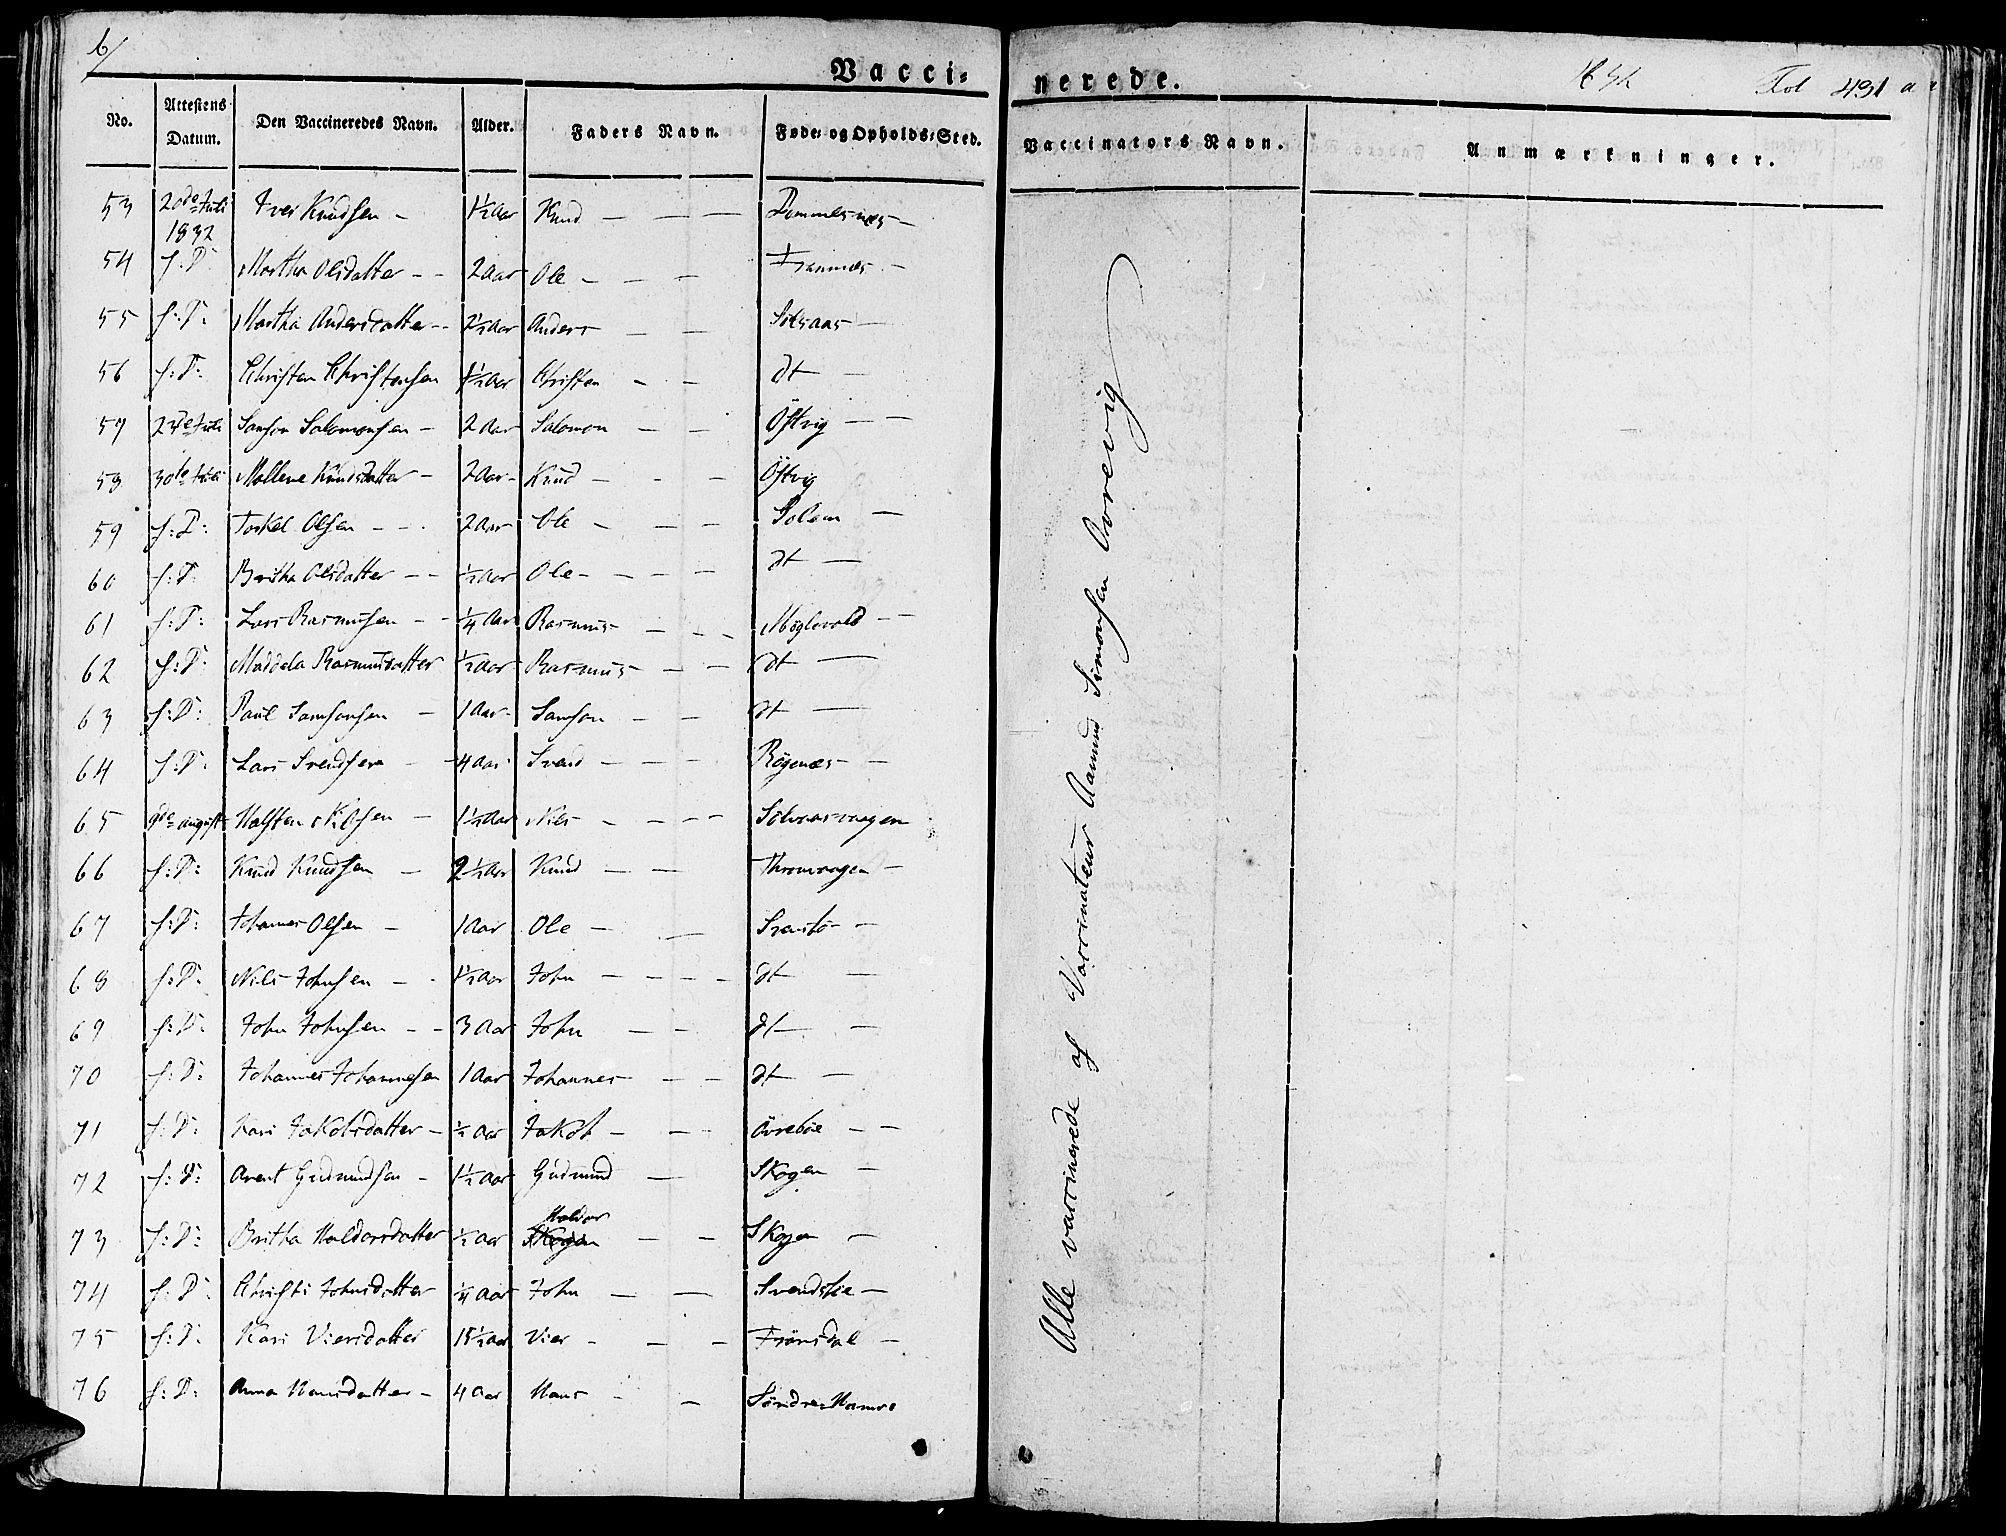 6/
Vacci-
nerede.
Fol 431 a
No. Attestens Datum. Den Vaccineredes Navn. Alder. Faders Navn. Føde- og Opholds-Sted. Vaccinators Navn. Anmærkninger.
53 20de Juli 1832 Iver Knudsen - 1½ Aar Knud - - - Dommesnæs -
54 f: D: Martha Olsdatter - - 2 Aar Ole - - -
55 f: D: Martha Andersdatter - - 2½ Aar Anders - - -
56 f: D: Christen Christensen 1½ Aar Christen - - dt -
57 24de Juli Samson Salomonsen - 2 Aar Salomon - - Östvig -
58 30te Juli Mallene Knudsdatter - 2 Aar - Knud - - - Östvig
59 f: D: Torkel Olsen - - - 2 Aar Ole - - - Solem -
60 f: D: Britha Olsdatter - - ½ Aar Ole - - - - dt -
61 f: D: Lars Rasmusen - - ¼ Aar Rasmus - - - Möglevold - -
62 f: D: Maddela Rasmusdatter ½ Aar Rasmus - - - dt -
63 f: D: Paul Samsonsen - 1 Aar - Samson - - dt -
64 f: D: Lars Svendsen - 4 Aar Svend - - - Rögenæs - -
65 9de august Halsten Nilsen - 1½ Aar Nils - - - - Sölvaasvaagen
66 f: D: Knud Knudsen - 2½ Aar Knud - - Thronvaagen -
67 f: D: Johannes Olsen - 1 Aar Ole - - Svansbö - -
68 f: D: Nils Johnsen - - 1½ Aar John - - - - dt -
69 f: D: John Johnsen - - 3 Aar John - - dt - -
70 f: D: Johannes Johannesen 1 Aar Johannes - - - dt - -
71 f: D: Kari Jakobsdatter - ½ Aar Jakob - - - Övreböe - -
72 f: D: Arent Gudmundsen - 1½ Aar Gudmund - Skogen -
73 f: D: Britha Haldorsdatter ½ Aar Haldor Skogen - - Skogen -
74 f: D: Christi Johnsdatter ¼ Aar John - - Svendsbøe -
75 f: D: Kari Viersdatter 15½ Aar Vier - - - Frönsdal -
76 f: D: Anna Hansdatter - 4 Aar Hans - - Söndre Hamre
Alle vaccinerede af Vaccinateur Aamund Simonsen Aarevig